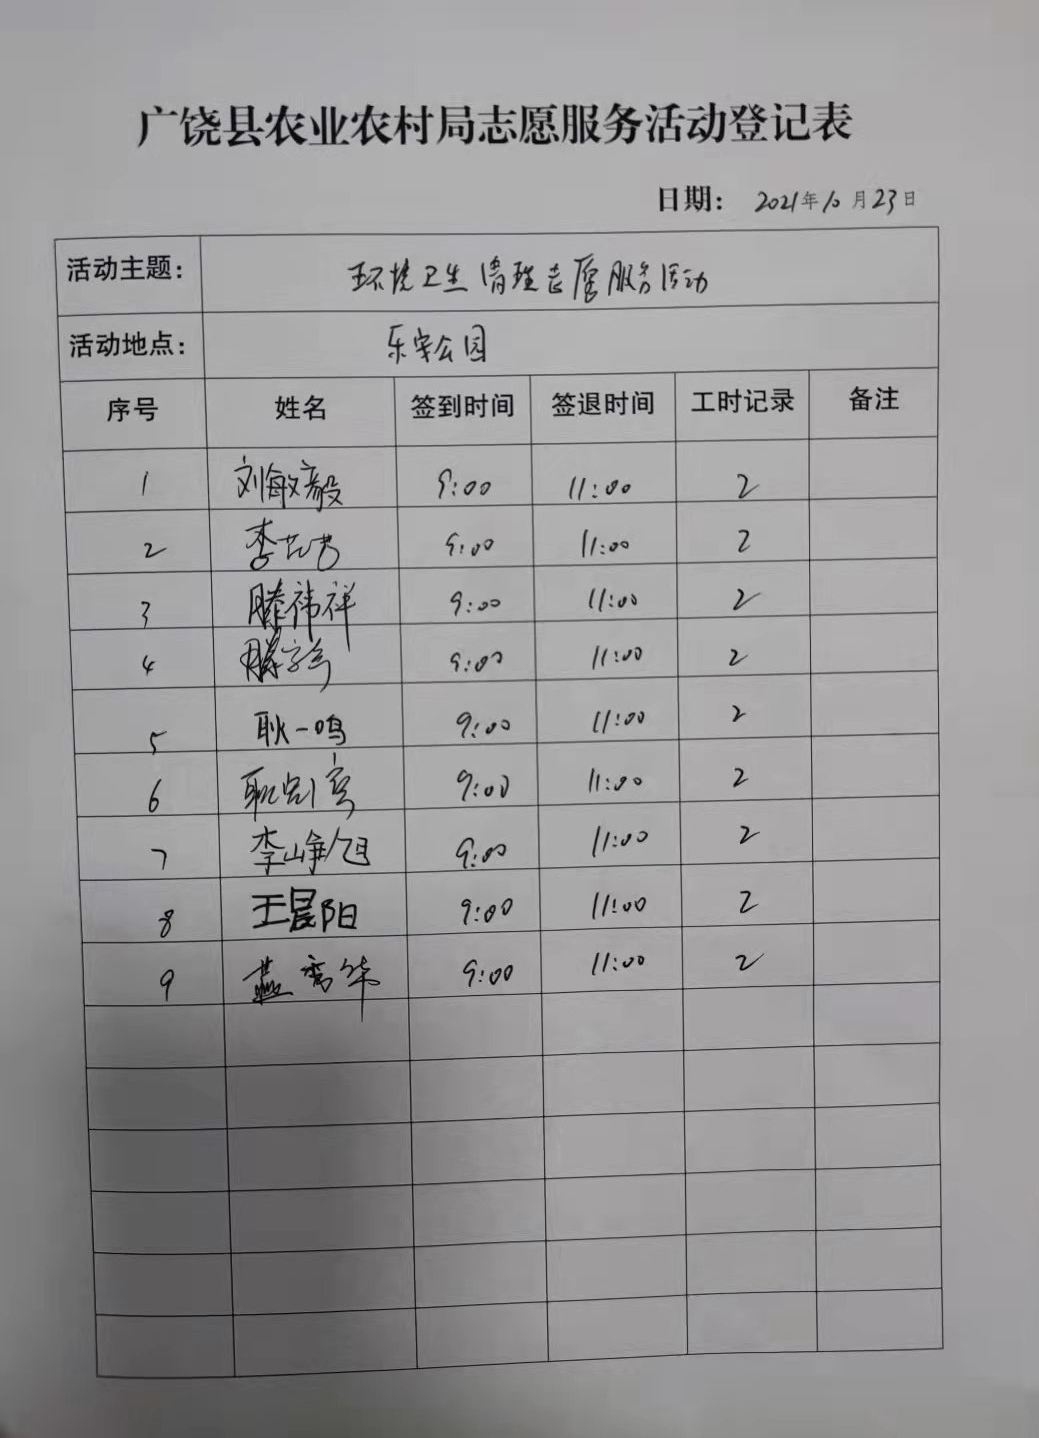 广饶县农业农村局志愿服务活动登记表
日期： 2021年10月23日
活动主题： 环境卫生清理志愿服务活动
活动地点： 乐安公园
序号 姓名 签到时间 签退时间 工时记录 备注
1 刘敏毅 9:00 11:00 2
2 李 9:00 11:00 2
3 滕祎祥 9:00 11:00 2
4 滕 9:00 11:00 2
5 耿一鸣 9:00 11:00 2
6 9:00 11:00 2
7 李峥旭 9:00 11:00 2
8 王晨阳 9:00 11:00 2
9 燕 华 9:00 11:00 2